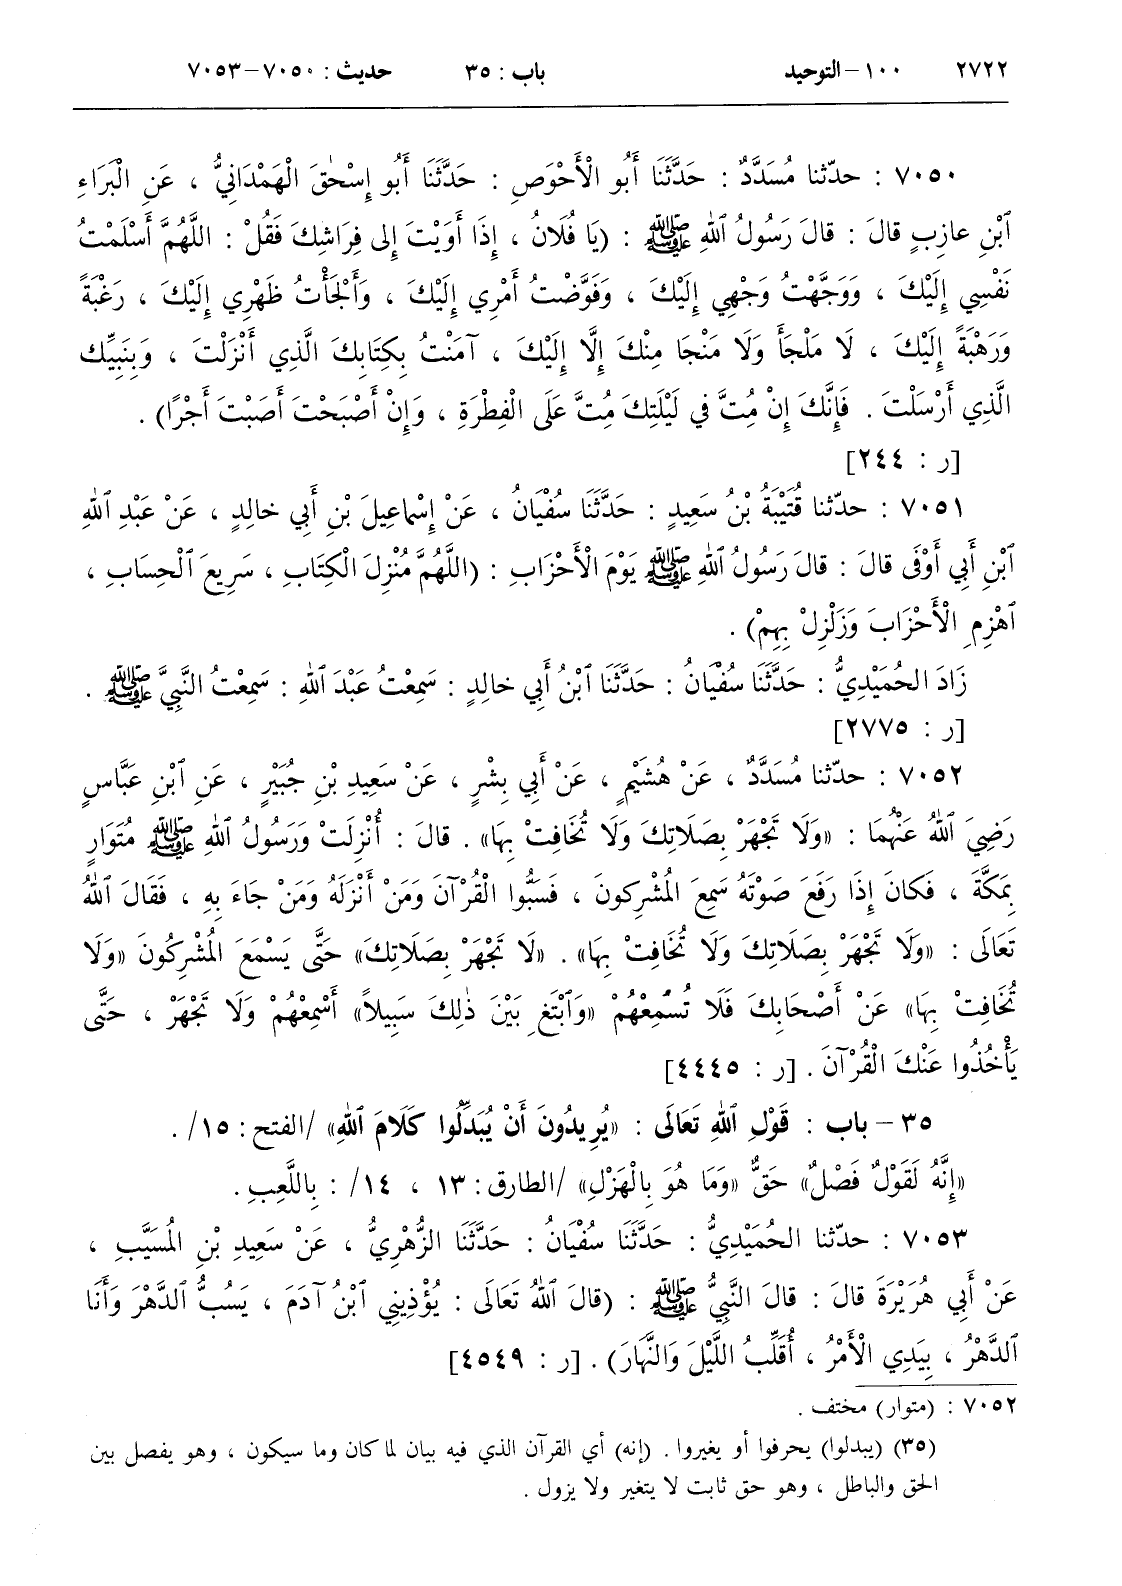 ٢٧٢٢ ١٠٠ – التوحيد باب : ٣٥ حديث : ٧٠٥٠ – ٧٠٥٣
٧٠٥٠ : حدّثنا مُسَدَّدٌ : حَدَّثَنَا أَبُو الْأَحْوَصِ : حَدَّثَنَا أَبُو إِسْحٰقَ الْهَمْدَانِيُّ ، عَنِ الْبَرَاءِ
ٱبْنِ عازِبٍ قالَ : قالَ رَسُولُ ٱللهِ ﷺ : (يَا فُلَانُ ، إِذَا أَوَيْتَ إِلى فِرَاشِكَ فَقُلْ : اللَّهُمَّ أَسْلَمْتُ
نَفْسِي إِلَيْكَ ، وَوَجَّهْتُ وَجْهِي إِلَيْكَ ، وَفَوَّضْتُ أَمْرِي إِلَيْكَ ، وَأَلْجَأْتُ ظَهْرِي إِلَيْكَ ، رَغْبَةً
وَرَهْبَةً إِلَيْكَ ، لَا مَلْجَأَ وَلَا مَنْجَا مِنْكَ إِلَّا إِلَيْكَ ، آمَنْتُ بِكِتَابِكَ الَّذِي أَنْزَلْتَ ، وَبِنَبِيِّكَ
الَّذِي أَرْسَلْتَ . فَإِنَّكَ إِنْ مُتَّ في لَيْلَتِكَ مُتَّ عَلَى الْفِطْرَةِ ، وَإِنْ أَصْبَحْتَ أَصَبْتَ أَجْرًا) .
[ر : ٢٤٤]
٧٠٥١ : حدّثنا قُتَيْبَةُ بْنُ سَعِيدٍ : حَدَّثَنَا سُفْيَانُ ، عَنْ إِسْماعِيلَ بْنِ أَبِي خالِدٍ ، عَنْ عَبْدِ ٱللهِ
ٱبْنِ أَبِي أَوْفَى قالَ : قالَ رَسُولُ ٱللهِ ﷺ يَوْمَ الْأَحْزَابِ : (اللَّهُمَّ مُنْزِلَ الْكِتَابِ ، سَرِيعَ ٱلْحِسَابِ ،
ٱهْزِمِ الْأَحْزَابَ وَزَلْزِلْ بِهِمْ) .
زَادَ الحُمَيْدِيُّ : حَدَّثَنَا سُفْيَانُ : حَدَّثَنَا ٱبْنُ أَبِي خالِدٍ : سَمِعْتُ عَبْدَ ٱللهِ : سَمِعْتُ النَّبِيَّ ﷺ .
[ر : ٢٧٧٥]
٧٠٥٢ : حدّثنا مُسَدَّدٌ ، عَنْ هُشَيْمٍ ، عَنْ أَبِي بِشْرٍ ، عَنْ سَعِيدِ بْنِ جُبَيْرٍ ، عَنِ ٱبْنِ عَبَّاسٍ
رَضِيَ ٱللهُ عَنْهُمَا : «وَلَا تَجْهَرْ بِصَلَاتِكَ وَلَا تُخَافِتْ بِهَا» . قالَ : أُنْزِلَتْ وَرَسُولُ ٱللهِ ﷺ مُتَوَارٍ
بِمَكَّةَ ، فَكانَ إِذَا رَفَعَ صَوْتَهُ سَمِعَ المُشْرِكونَ ، فَسَبُّوا الْقُرْآنَ وَمَنْ أَنْزَلَهُ وَمَنْ جَاءَ بِهِ ، فَقَالَ ٱللهُ
تَعَالَى : «وَلَا تَجْهَرْ بِصَلَاتِكَ وَلَا تُخَافِتْ بِهَا» . «لَا تَجْهَرْ بِصَلَاتِكَ» حَتَّى يَسْمَعَ المُشْرِكُونَ «وَلَا
تُخَافِتْ بِهَا» عَنْ أَصْحَابِكَ فَلَا تُسْمِعُهُمْ «وَٱبْتَغِ بَيْنَ ذٰلِكَ سَبِيلاً» أَسْمِعْهُمْ وَلَا تَجْهَرْ ، حَتَّى
يَأْخُذُوا عَنْكَ الْقُرْآنَ . [ر : ٤٤٤٥]
٣٥ – باب : قَوْلِ ٱللهِ تَعَالَى : «يُرِيدُونَ أَنْ يُبَدِّلُوا كَلَامَ ٱللهِ» /الفتح : ١٥/ .
«إِنَّهُ لَقَوْلٌ فَصْلٌ» حَقٌّ «وَمَا هُوَ بِالْهَزْلِ» /الطارق : ١٣ ، ١٤/ : بِاللَّعِبِ .
٧٠٥٣ : حدّثنا الحُمَيْدِيُّ : حَدَّثَنَا سُفْيَانُ : حَدَّثَنَا الزُّهْرِيُّ ، عَنْ سَعِيدِ بْنِ المُسَيَّبِ ،
عَنْ أَبِي هُرَيْرَةَ قالَ : قالَ النَّبِيُّ ﷺ : (قالَ ٱللهُ تَعَالَى : يُؤْذِينِي ٱبْنُ آدَمَ ، يَسُبُّ ٱلدَّهْرَ وَأَنَا
ٱلدَّهْرُ ، بِيَدِي الْأَمْرُ ، أُقَلِّبُ اللَّيْلَ وَالنَّهَارَ) . [ر : ٤٥٤٩]
٧٠٥٢ : (متوار) مختف .
(٣٥) (يبدلوا) يحرفوا أو يغيروا . (إنه) أي القرآن الذي فيه بيان لما كان وما سيكون ، وهو يفصل بين
الحق والباطل ، وهو حق ثابت لا يتغير ولا يزول .